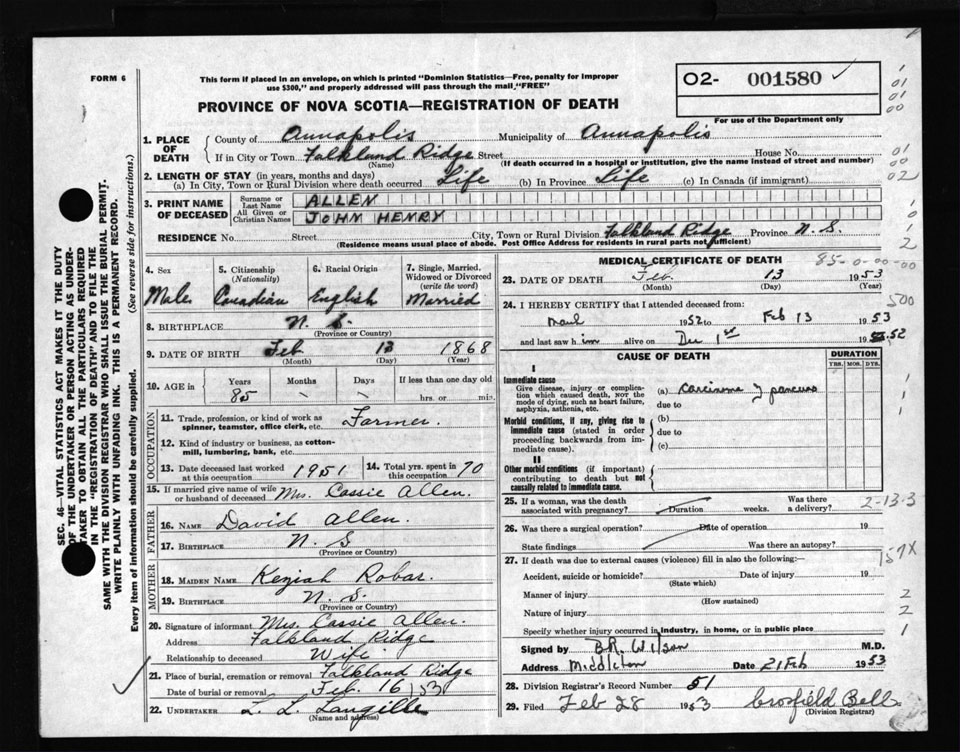 FORM 6
This form if placed in an envelope, on which is printed "Dominion Statistics—Free, penalty for improper
use $300," and properly addressed will pass through the mail "FREE"
PROVINCE OF NOVA SCOTIA—REGISTRATION OF DEATH
O2- 001580
For use of the Department only
1. PLACE OF DEATH
County of Annapolis Municipality of Annapolis
If in City or Town Falkland Ridge Street House No.
(Name) (If death occurred in a hospital or institution, give the name instead of street and number)
2. LENGTH OF STAY (in years, months and days)
(a) In City, Town or Rural Division where death occurred Life (b) In Province Life (c) In Canada (if immigrant)
3. PRINT NAME OF DECEASED
Surname or Last Name ALLEN
All Given or Christian Names JOHN HENRY
RESIDENCE No. Street City, Town or Rural Division Falkland Ridge Province N. S.
(Residence means usual place of abode. Post Office Address for residents in rural parts not sufficient)
4. Sex Male
5. Citizenship (Nationality) Canadian
6. Racial Origin English
7. Single, Married, Widowed or Divorced (write the word) Married
8. BIRTHPLACE N. S.
(Province or Country)
9. DATE OF BIRTH Feb 13 1868
(Month) (Day) (Year)
10. AGE in Years Months Days If less than one day old
85 \ \ hrs. or min.
OCCUPATION
11. Trade, profession, or kind of work as spinner, teamster, office clerk, etc. Farmer.
12. Kind of industry or business, as cotton-mill, lumbering, bank, etc.
13. Date deceased last worked at this occupation 1951
14. Total yrs. spent in this occupation 70
15. If married give name of wife or husband of deceased Mrs. Cassie Allen.
FATHER
16. NAME David Allen.
17. BIRTHPLACE N. S
(Province or Country)
MOTHER
18. MAIDEN NAME Keziah Robar.
19. BIRTHPLACE N. S.
(Province or Country)
20. Signature of informant Mrs. Cassie Allen.
Address Falkland Ridge
Relationship to deceased Wife
21. Place of burial, cremation or removal Falkland Ridge
Date of burial or removal Feb. 16 / 53
22. UNDERTAKER L. L. Langille
(Name and address)
MEDICAL CERTIFICATE OF DEATH
85-0-00-00
23. DATE OF DEATH Feb. 13 1953
(Month) (Day) (Year)
24. I HEREBY CERTIFY that I attended deceased from:
1952 to Feb 13 1953
and last saw him alive on Dec 1st 1952
500
CAUSE OF DEATH
DURATION
YRS. MOS. DYS.
I
Immediate cause
Give disease, injury or complication which caused death, not the mode of dying, such as heart failure, asphyxia, asthenia, etc.
(a) Carcinoma of pancreas
due to
Morbid conditions, if any, giving rise to immediate cause (stated in order proceeding backwards from immediate cause).
(b)
due to
(c)
II
Other morbid conditions (if important) contributing to death but not causally related to immediate cause.
25. If a woman, was the death associated with pregnancy? Duration weeks. Was there a delivery?
2-13-3
26. Was there a surgical operation? Date of operation 19
State findings Was there an autopsy?
157X
27. If death was due to external causes (violence) fill in also the following:—
Accident, suicide or homicide? Date of injury 19
(State which)
Manner of injury
(How sustained)
Nature of injury
Specify whether injury occurred in industry, in home, or in public place
Signed by B.R. Wilson M.D.
Address Middleton Date 21 Feb 1953
28. Division Registrar's Record Number 51
29. Filed Feb 28 1953 Crosfield Bell
(Division Registrar)
SEC. 46—VITAL STATISTICS ACT MAKES IT THE DUTY
OF THE UNDERTAKER OR PERSON ACTING AS UNDER-
TAKER TO OBTAIN ALL THE PARTICULARS REQUIRED
IN THE "REGISTRATION OF DEATH" AND TO FILE THE
SAME WITH THE DIVISION REGISTRAR WHO SHALL ISSUE THE BURIAL PERMIT.
WRITE PLAINLY WITH UNFADING INK. THIS IS A PERMANENT RECORD.
Every item of information should be carefully supplied. (See reverse side for instructions.)